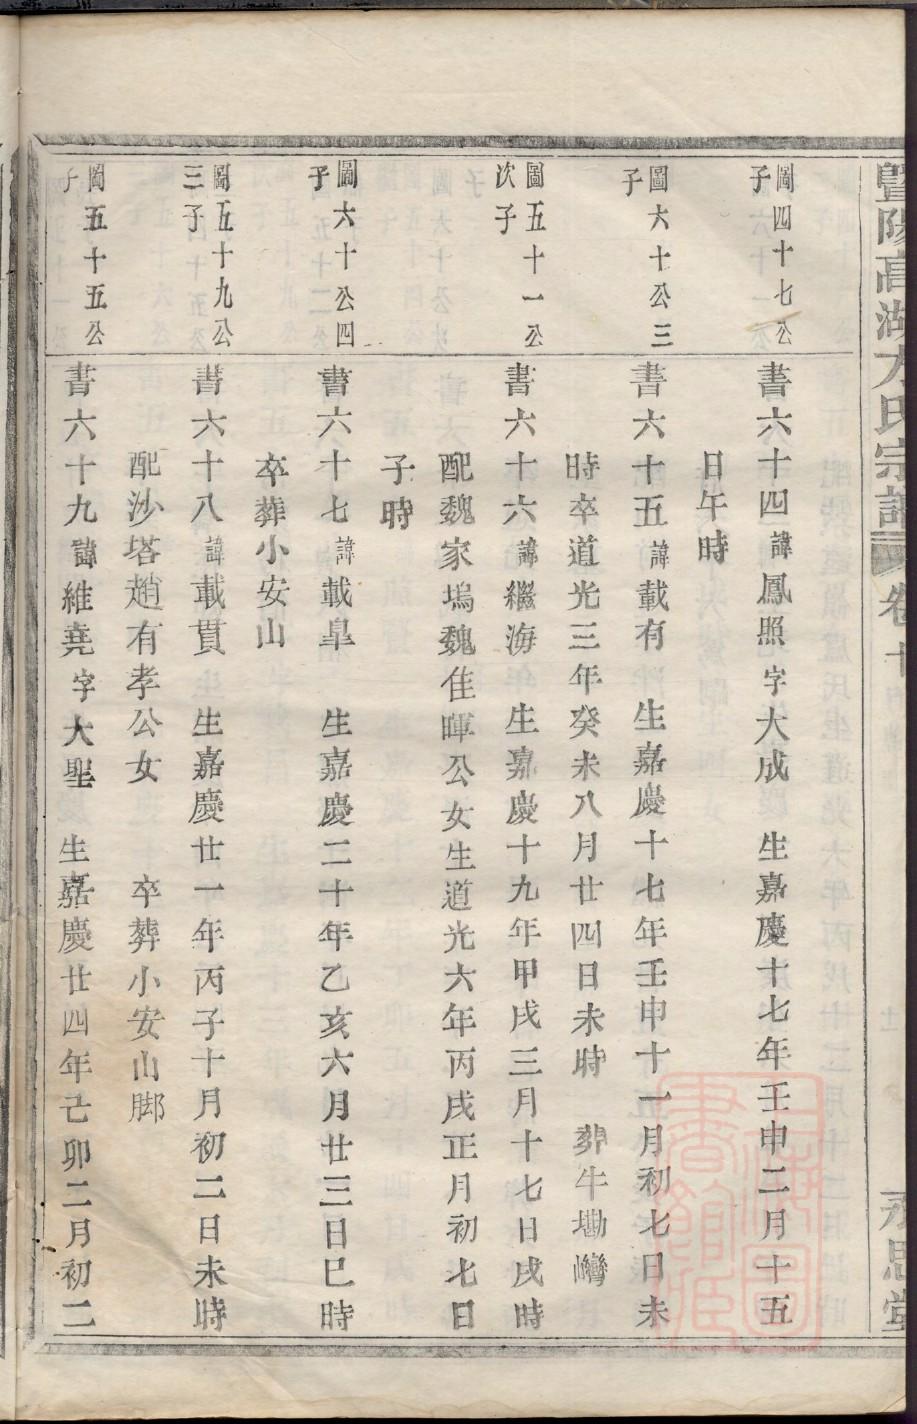 暨陽高湖方氏宗譜 卷十 永思堂
圖四十七公子
書六十四諱鳳照字大成 生嘉慶十七年壬申二月十五
日午時
圖六十公三子
書六十五諱載有 生嘉慶十七年壬申十一月初七日未
時卒道光三年癸未八月廿四日未時 葬牛塸灣
圖五十一公次子
書六十六諱繼海 生嘉慶十九年甲戌三月十七日戌時
配魏家塢魏佳暉公女生道光六年丙戌正月初七日
子時
圖六十公四子
書六十七諱載臯 生嘉慶二十年乙亥六月廿三日巳時
卒葬小安山
圖五十九公三子
書六十八諱載貫 生嘉慶廿一年丙子十月初二日未時
配沙塔趙有孝公女 卒葬小安山脚
圖五十五公子
書六十九諱維堯字大聖 生嘉慶廿四年己卯二月初二